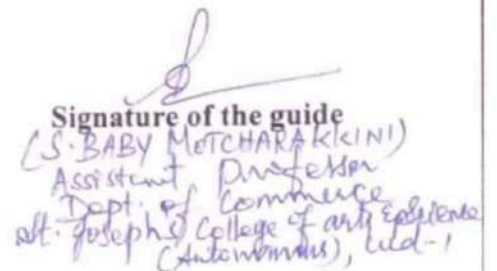 Signature of the guide
(S. BABY METCHARAKKINI)
Assistant Professor
Dept. of Commerce
St. Joseph's College of arts & Science
(Autonomous), Cud-1